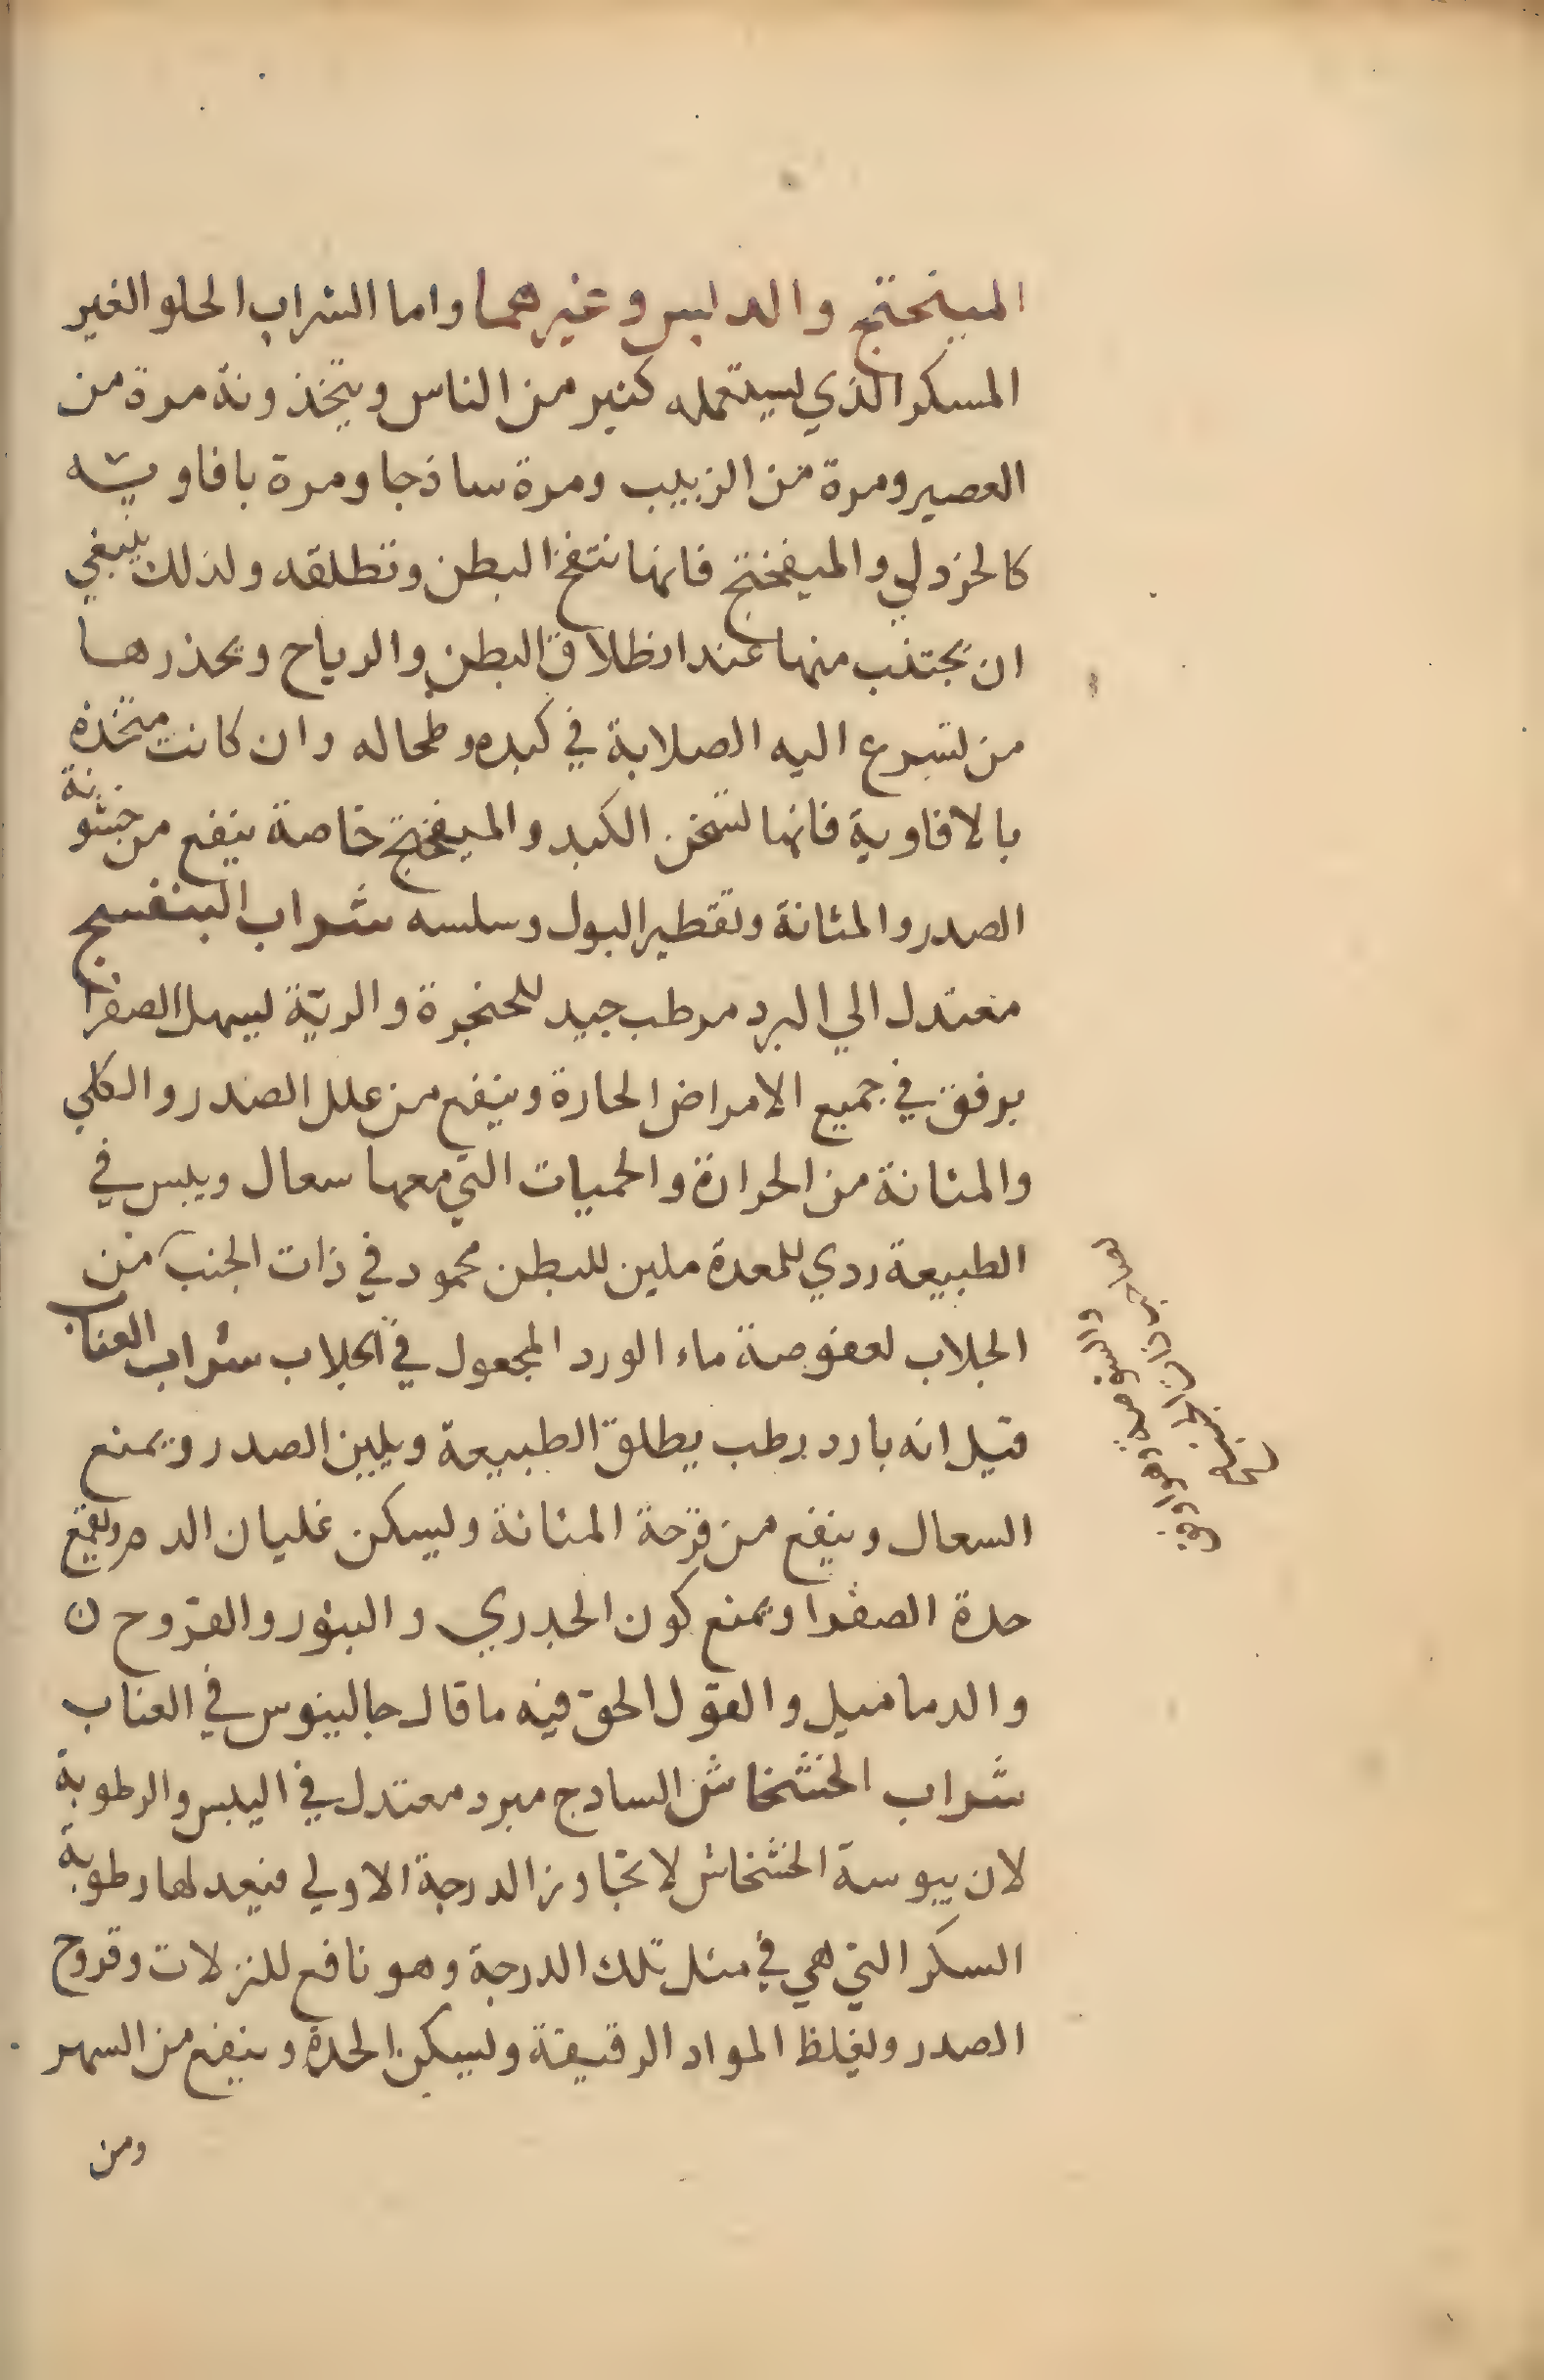 الميبختج والدابس وغيرهما واما الشراب الحلو الغير
المسكر الذي يستعمله كثير من الناس ويتخذونة مرة من
العصير ومرة من الزبيب ومرة ساذجا ومرة بافاويه
كالخزدلي والميفختج فانها تنفخ البطن وتطلقه ولذلك ينبغي
ان يجتنب منها عند انطلاق البطن والرياح ويحذرها
من تسرع اليه الصلابة في كبده وطحاله وان كانت متخذة
بالافاوية فانها تسخن الكبد والميفختج خاصة ينفع من خشونة
الصدر والمثانة وتقطير البول وسلسه شراب البنفسج
معتدل الي البرد مرطب جيد للحنجرة والرية يسهل الصفرا
برفق في جميع الامراض الحارة وينفع من علل الصدر والكلي
والمثانة من الحرارة والحميات التي معها سعال ويبس في
الطبيعة ردي للمعدة ملين للبطن محمود في ذات الجنب من
الجلاب لعفوصة ماء الورد المجعول في الجلاب شراب العناب
قيل انه بارد رطب يطلق الطبيعة ويلين الصدر ويمنع
السعال وينفع من قرحة المثانة ويسكن غليان الدم ويقمع
حدة الصفرا ويمنع كون الجدري والبثور والقروح ن
والدماميل والقول الحق فيه ما قال جالينوس في العناب
شراب الخشخاش السادج مبرد معتدل في اليبس والرطوبة
لان يبوسة الخشخاش لا تجاوز الدرجة الاولي فيعدلها رطوبة
السكر التي هي في مثل تلك الدرجة وهو نافع للنزلات وقروح
الصدر ويغلظ المواد الرقيقة ويسكن الحدة وينفع من السهر
ومن
ذات الجنب